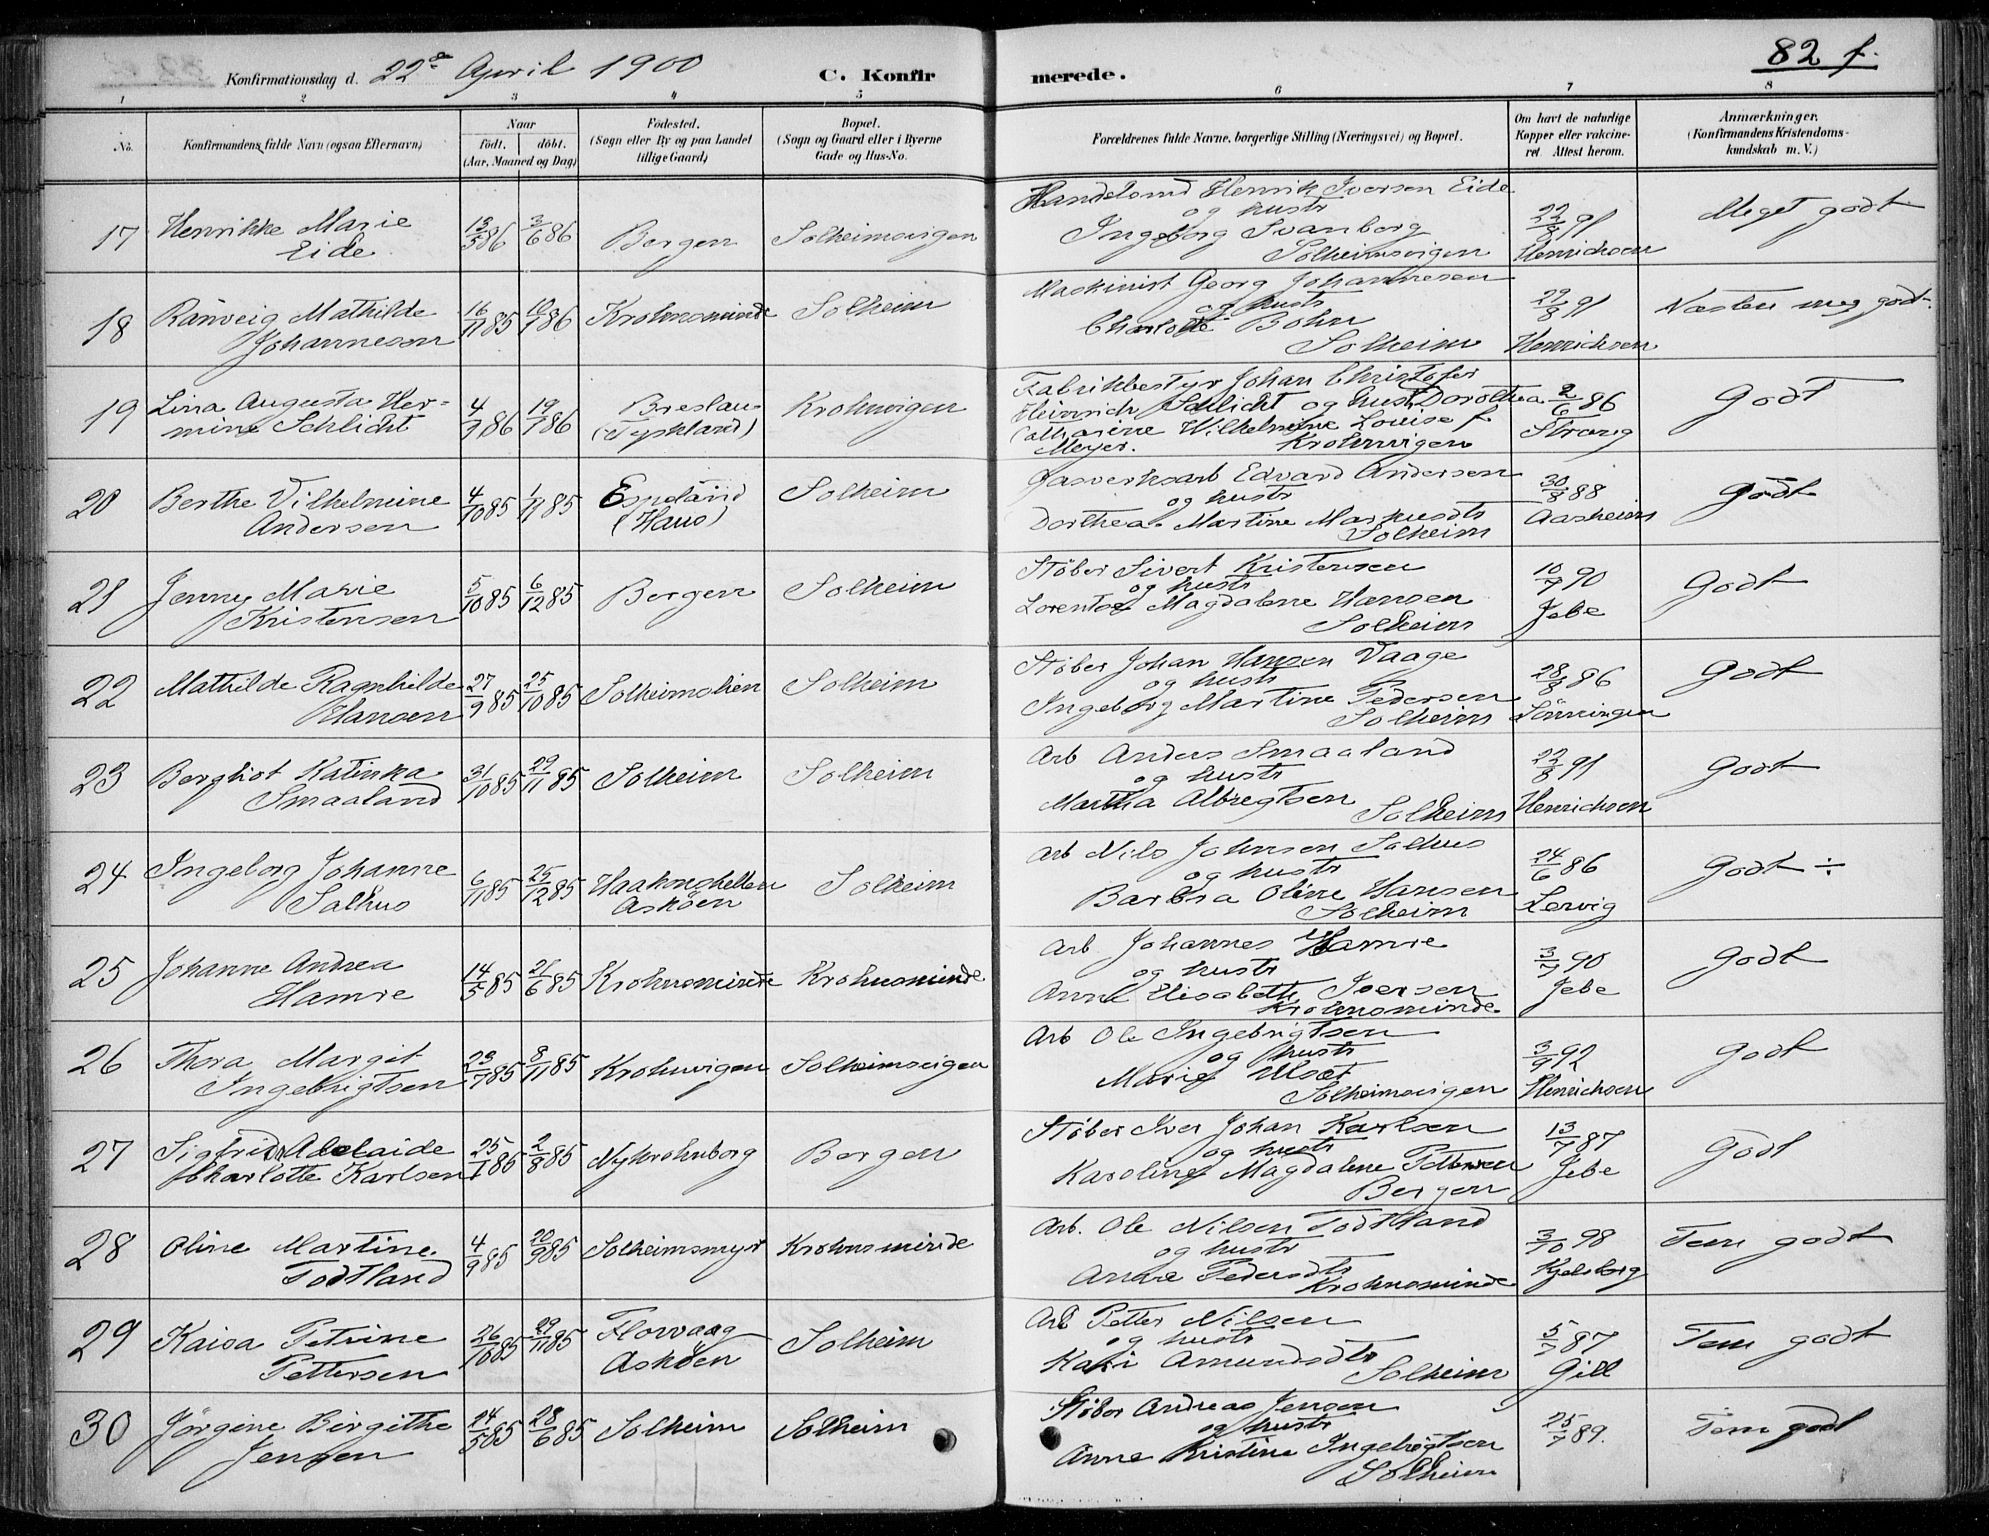 Konfirmationsdag d. 22de April 1900 C. Konfir merede. 82 f.
1 2 3 4 5 6 7 8
No. Konfirmandens fulde Navn (ogsaa Efternavn)
Naar
födt. döbt.
(Aar, Maaned og Dag)
Födested.
(Sogn eller By og paa Landet
tillige Gaard)
Bopæl.
(Sogn og Gaard eller i Byerne
Gade og Hus-No.
Forældrenes fulde Navne, borgerlige Stilling (Næringsvei) og Bopæl.
Om havt de naturlige
Kopper eller vakcine-
ret. Attest herom.
Anmærkninger.
(Konfirmandens Kristendoms-
kundskab m. V.)
17 Henrikke Marie
Eide
13/5 86 3/6 86 Bergen Solheimsvigen
Handelsmd Henrik Iversen Eide
og hustr
Ingeborg Svanborg
Solheimsvigen
22/8 91
Henrichsen
Meget godt
18 Ranveig Mathilde
Johannesen
16/11 85 10/1 86 Krohnsminde Solheim
Maskinist Georg Johannesen
og hustr
Charlotte Bohn
Solheim
22/8 91
Henrichsen
Næsten meg godt
19 Lina Augusta Her-
mine Schlicht
4/1 86 19/1 86 Breslau
(Tyskland)
Krohnvigen
Fabrikbestyr Johan Christofer
Heinrich Schlicht og hust Dorothea
Catharine Wilhelmine Louise f
Meyer. Krohnvigen
2/6 86
Godt
20 Berthe Vilhelmine
Andersen
4/10 85 1/11 85
(Haus)
Solheim
Gasverksarb Edvard Andersen
og hustr
Dorthea Martine Markusdtr
Solheim
30/8 88
Aasheim
Godt
21 Jenny Marie
Kristensen
5/10 85 6/12 85 Bergen Solheim
Støber Sivert Kristensen
og hustr
Lorentse Magdalene Hansen
Solheim
10/7 90
Jebe
Godt
22 Mathilde Ragnhilde
Hansen
27/9 85 25/10 85 Solheimslien Solheim
Støber Johan Hansen Vaage
og hustr
Ingeborg Martine Pedersen
Solheim
28/8 86
Godt
23 Bergliot Katinka
Smaaland
31/10 85 29/11 85 Solheim Solheim
Arb Anders Smaaland
og hustr
Martha Albregtsen
Solheim
22/8 91
Henrichsen
Godt
24 Ingeborg Johanne
Salhus
6/11 85 25/12 85 Haakonshellen
Askøen
Solheim
Arb Nils Johnsen Salhus
og hustr
Barbra Oline Hansen
Solheim
24/6 86
Lervig
Godt ÷
25 Johanne Andrea
Hamre
14/5 85 21/6 85 Krohnsminde Krohnsminde
Arb. Johannes Hamre
og hustr
Anne Elisabeth Iversen
Krohnsminde
3/7 90
Jebe
Godt
26 Thora Margit
Ingebrigtsen
23/7 85 8/11 85 Krohnvigen Solheimsvigen
Arb Ole Ingebrigtsen
og hustr
Marie
Solheimsvigen
3/9 92
Henrichsen
Godt
27 Sigfrid Adelaide
Charlotte Karlsen
25/1 85 2/8 85 Nykrohnborg Bergen
Støber Iver Johan Karlsen
og hustr
Karoline Magdalene Pettersen
Bergen
13/7 87
Jebe
Godt
28 Oline Martine
Todtland
4/9 85 20/9 85 Solheimsmyr Krohnsminde
Arb. Ole Nilsen Todtland
og hustr
Anna Pedersdtr
Krohnsminde
3/10 98
Kjelsberg
Tem godt
29 Kaisa Petrine
Pettersen
26/10 85 29/11 85 Florvaag
Askøen
Solheim
Arb Petter Nilsen
og hustr
Kari Amundsdtr
Solheim
5/7 87
Gill
Tem godt
30 Jörgine Birgithe
Jensen
24/5 85 28/6 85 Solheim Solheim
Støber Andreas Jensen
og hustr
Anne Kristine Ingebrigtsen
Solheim
25/7 89.
Tem godt